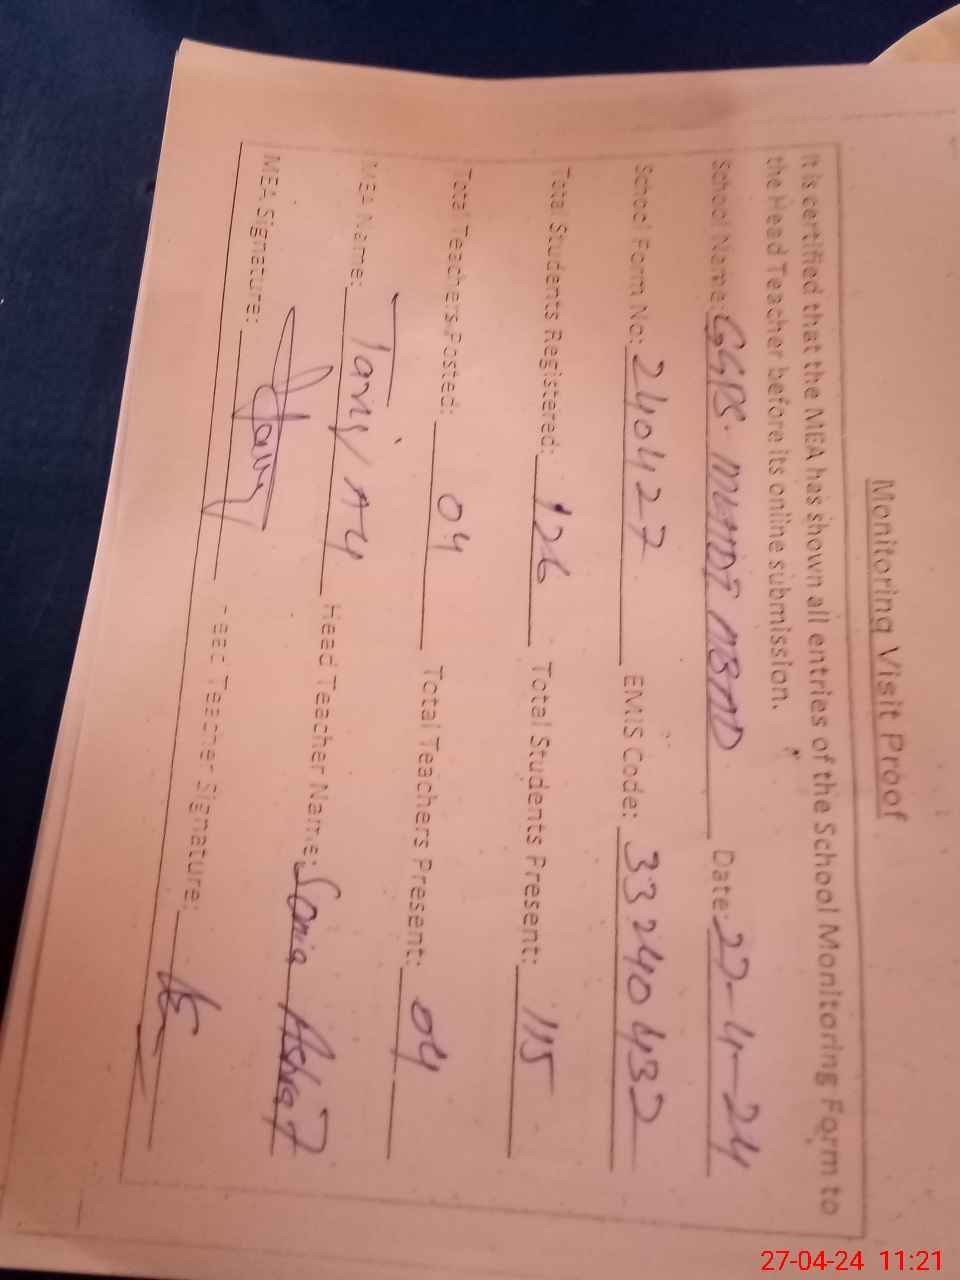 Monitoring Visit Proof
It is certified that the MEA has shown all entries of the School Monitoring Form to
the Head Teacher before its online submission.
School Name: GGPS. MUHDI ABAD Date: 27-4-24
School Form No: 240427 EMIS Code: 33240432
Total Students Registered: 126 Total Students Present: 115
Total Teachers Posted: 04 Total Teachers Present: 04
MEA Name: Head Teacher Name: Sonia Ashraf
MEA Signature: Head Teacher Signature:
27-04-24 11:21